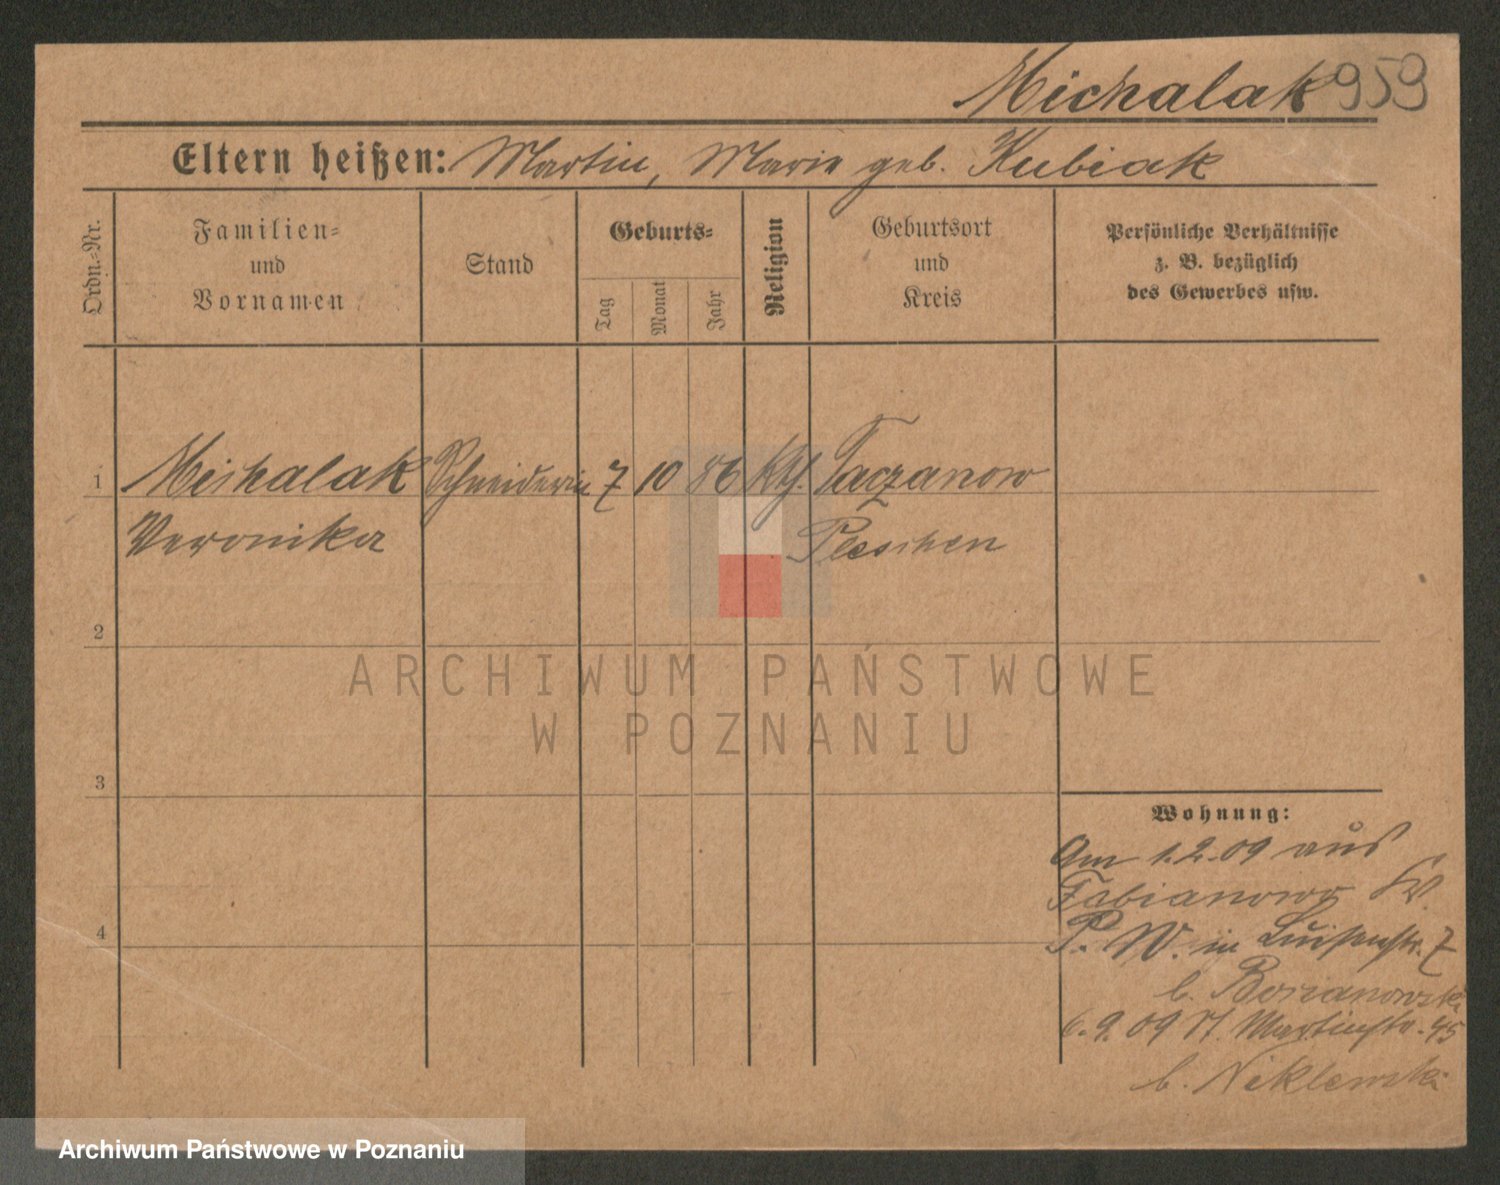 Michalak 959
Eltern heißen: Martin, Marie geb. Kubiak
Ordn.=Nr.
Familien=
und
Vornamen
Stand
Geburts=
Tag
Monat
Jahr
Religion
Geburtsort
und
Kreis
Persönliche Verhältnisse
z. B. bezüglich
des Gewerbes usw.
1 Michalak Schneiderin 7 10 86 kth. Taczanow
Veronika Pleschen
2
3
4
Wohnung:
Am 1.2.09 aus
Fabianowo Kr.
P. W. in Luisenstr. 7
b. Borzanowski
6.9.09 St. Martinstr. 45
b. Niklewski
ARCHIWUM PAŃSTWOWE
W POZNANIU
Archiwum Państwowe w Poznaniu